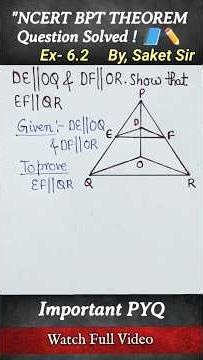 "NCERT BPT THEOREM
Question Solved ! 📘✏️
Ex- 6.2 By, Saket Sir
DE||OQ & DF||OR. Show that
EF||QR
Given:- DE||OQ
& DF||OR
To prove
EF||QR
P
D
E
F
O
Q
R
Important PYQ
Watch Full Video